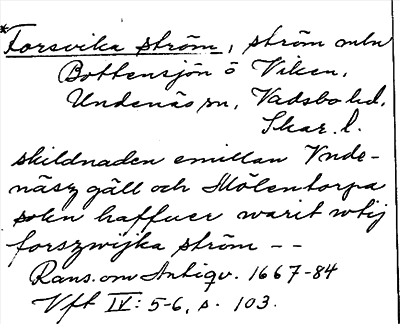 *Forsvika ström, ström mln
Bottensjön o Viken,
Undenäs sn, Vadsbo hd,
Skar. l.
skildnaden emillan Vnde-
näsz gäll och Mölentorpa
haffuer warit wtij
forszwijka ström --
Rans. om Antiqv. 1667-84
Vft IV: 5-6, s. 103.